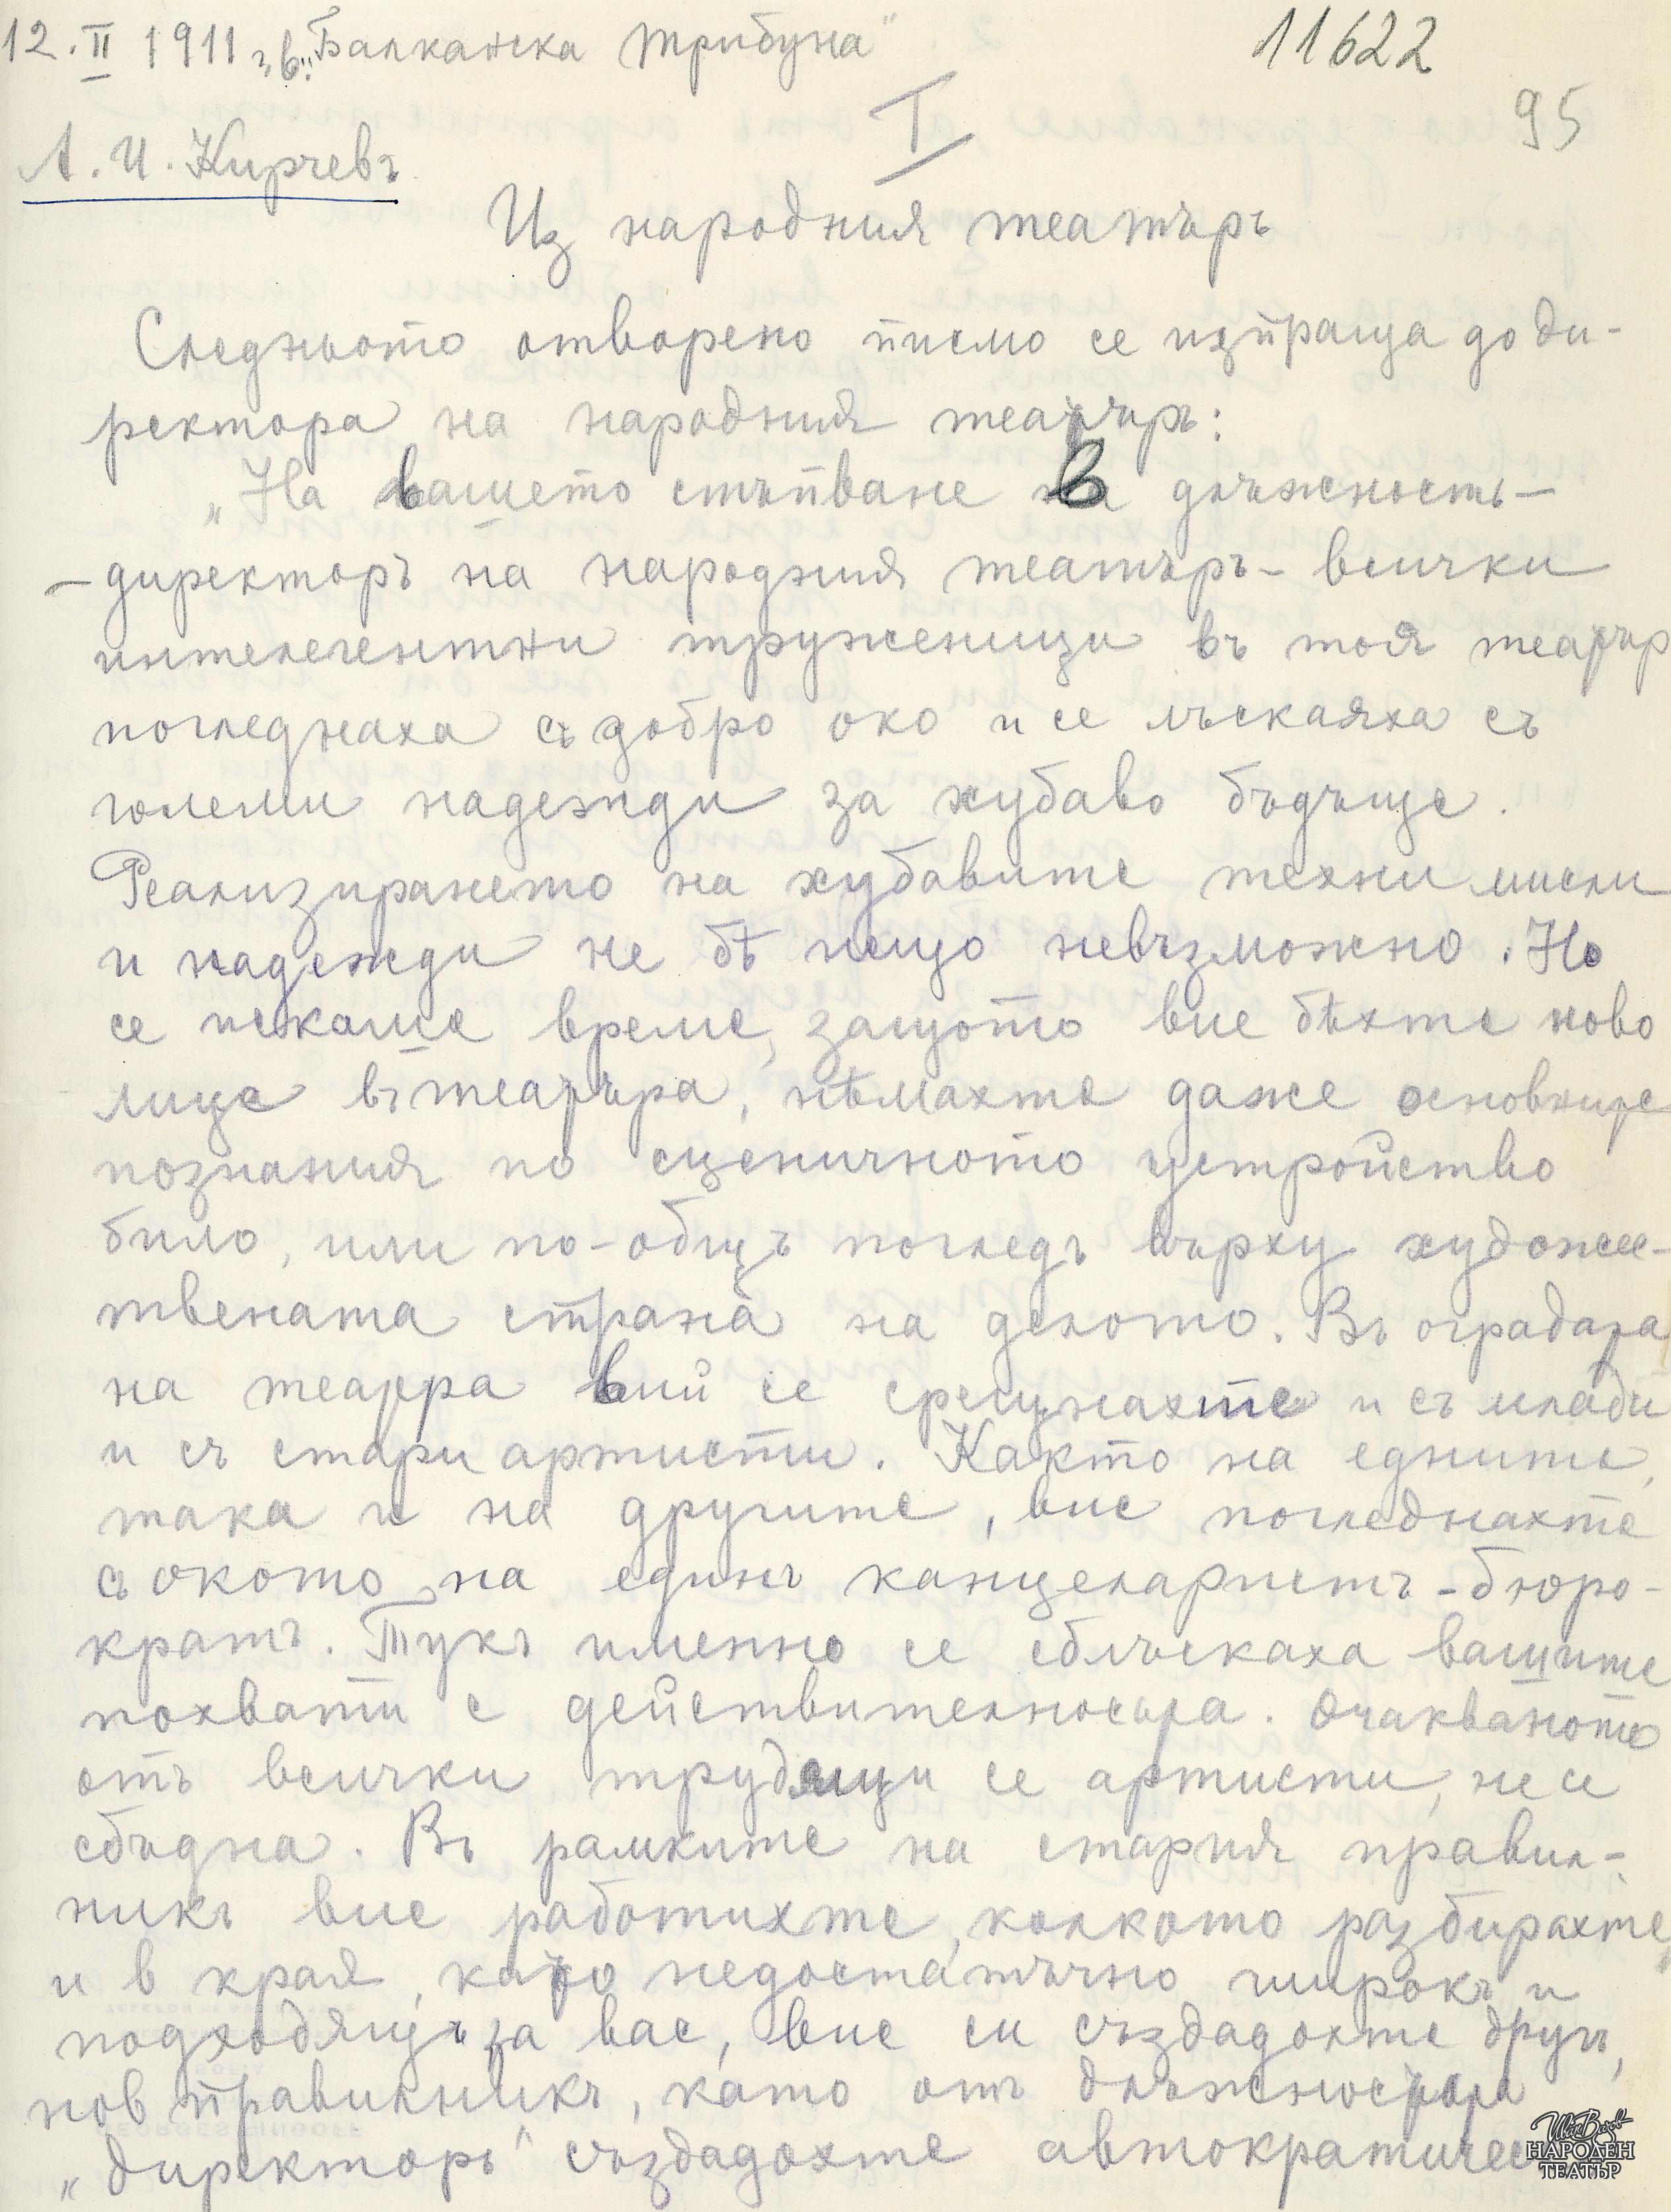 12.II 1911 г. в. „Балканска трибуна"
11622
95
I
А. И. Кирчевъ
Из народния театъръ
Следньото отворено писмо се изпраща до ди-
ректора на народния театъръ:
„На вашето стъпване в длъжность-
-директоръ на народния театъръ- всички
интелегентни труженици въ тоя театър
погледнаха съ добро око и се лъскаяха съ
големи надежди за хубаво бъдъще.
Реализирането на хубавите техни мисли
и надежди не бѣ нещо невъзможно. Но
се искаше време, защото вие бѣхте ново
лице въ театъра, нѣмахте даже основните
познания по сценичното устройство
било, или по-общъ погледъ върху художес-
твената страна на делото. Въ оградата
на театра вий се срещнахте и съ млади
и съ стари артисти. Както на едните,
така и на другите, вие погледнахте
съ окото на единъ канцеларистъ-бюро-
кратъ. Тукъ именно се сблъскаха вашите
похвати с действителностьта. Очакваното
отъ всички трудящи се артисти, не се
сбъдна. Въ рамките на стария правил-
никъ вие работихте, колкото разбирахте,
и в края, като недостатъчно широкъ и
подходящъ за вас, вие си създадохте другъ,
нов правилникъ, като отъ длъжностьта
„директоръ" създадохте автократичес
Иван Вазов
НАРОДЕН
ТЕАТЪР